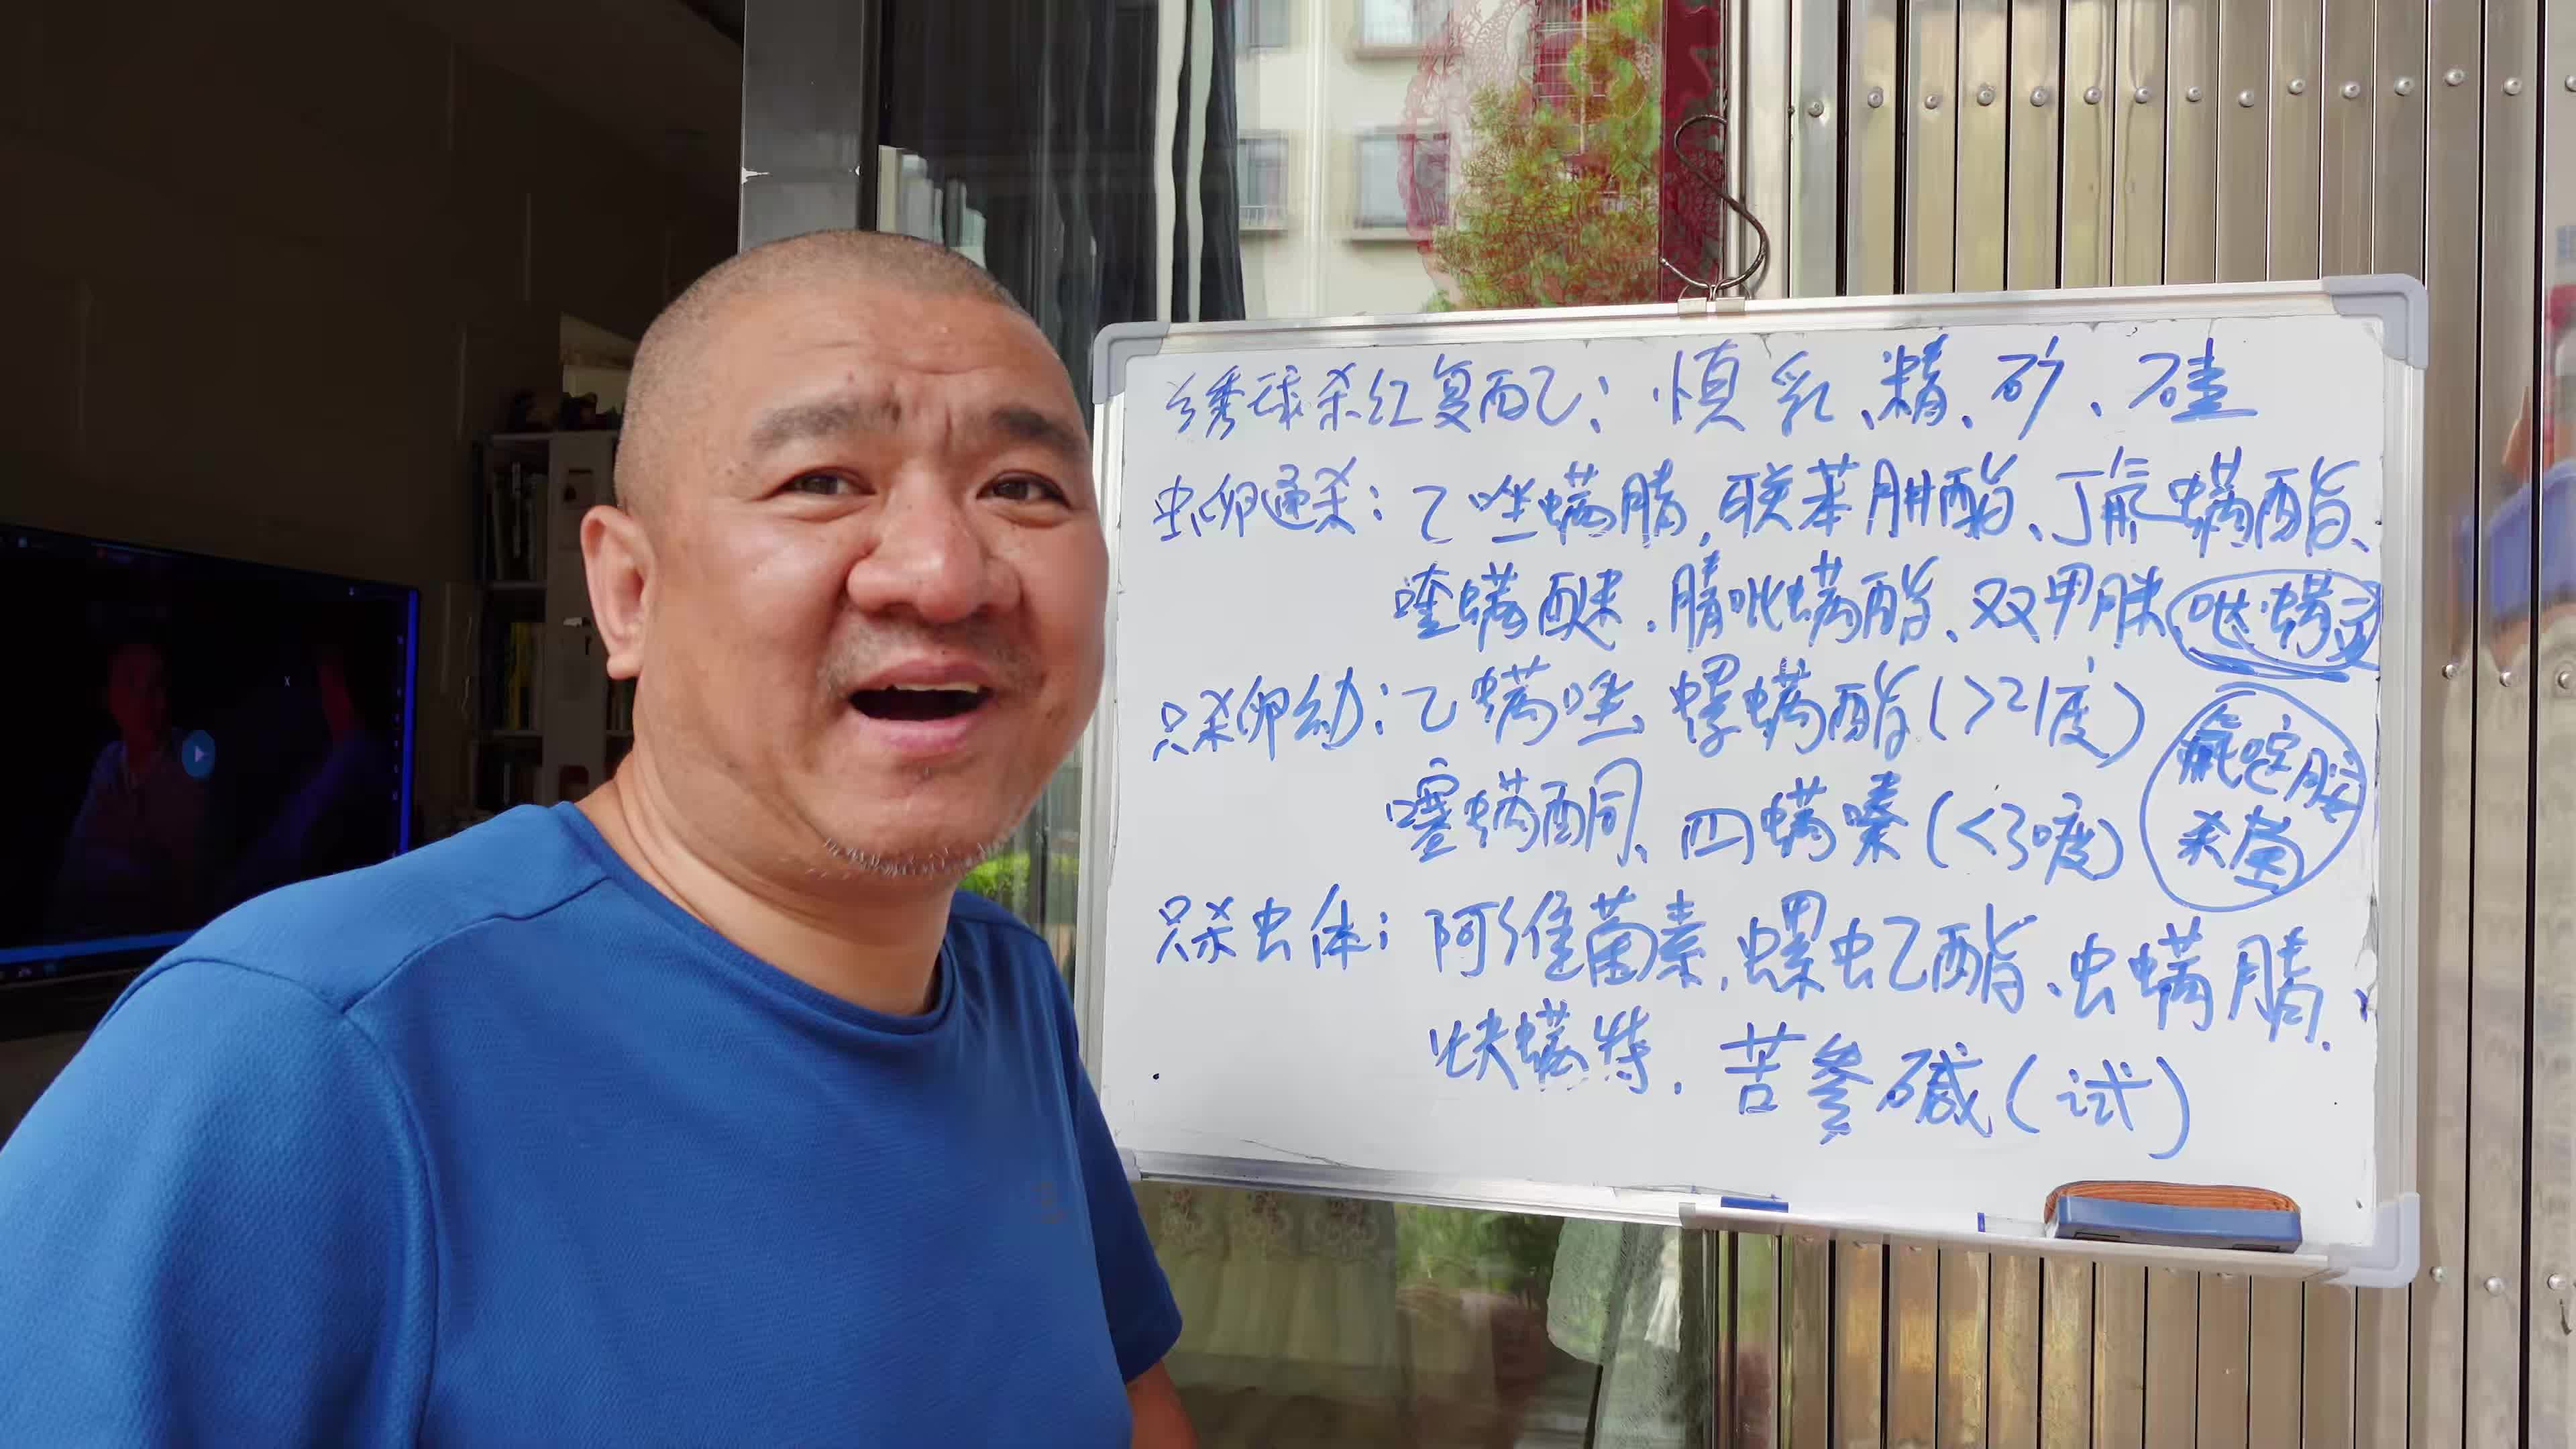 绣球杀红复配: 慎乳、精、矿、硅
虫卵通杀: 乙唑螨腈,联苯肼酯、丁氟螨酯、
喹螨醚、腈吡螨酯、双甲脒 哒螨灵
只杀卵幼: 乙螨唑 螺螨酯(>21度)
噻螨酮、四螨嗪(<30度)
氟啶胺
杀菌
只杀虫体: 阿维菌素,螺虫乙酯、虫螨腈、
炔螨特、苦参碱(试)